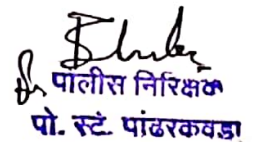 पोलीस निरिक्षक
पो. स्टे. पांढरकवडा